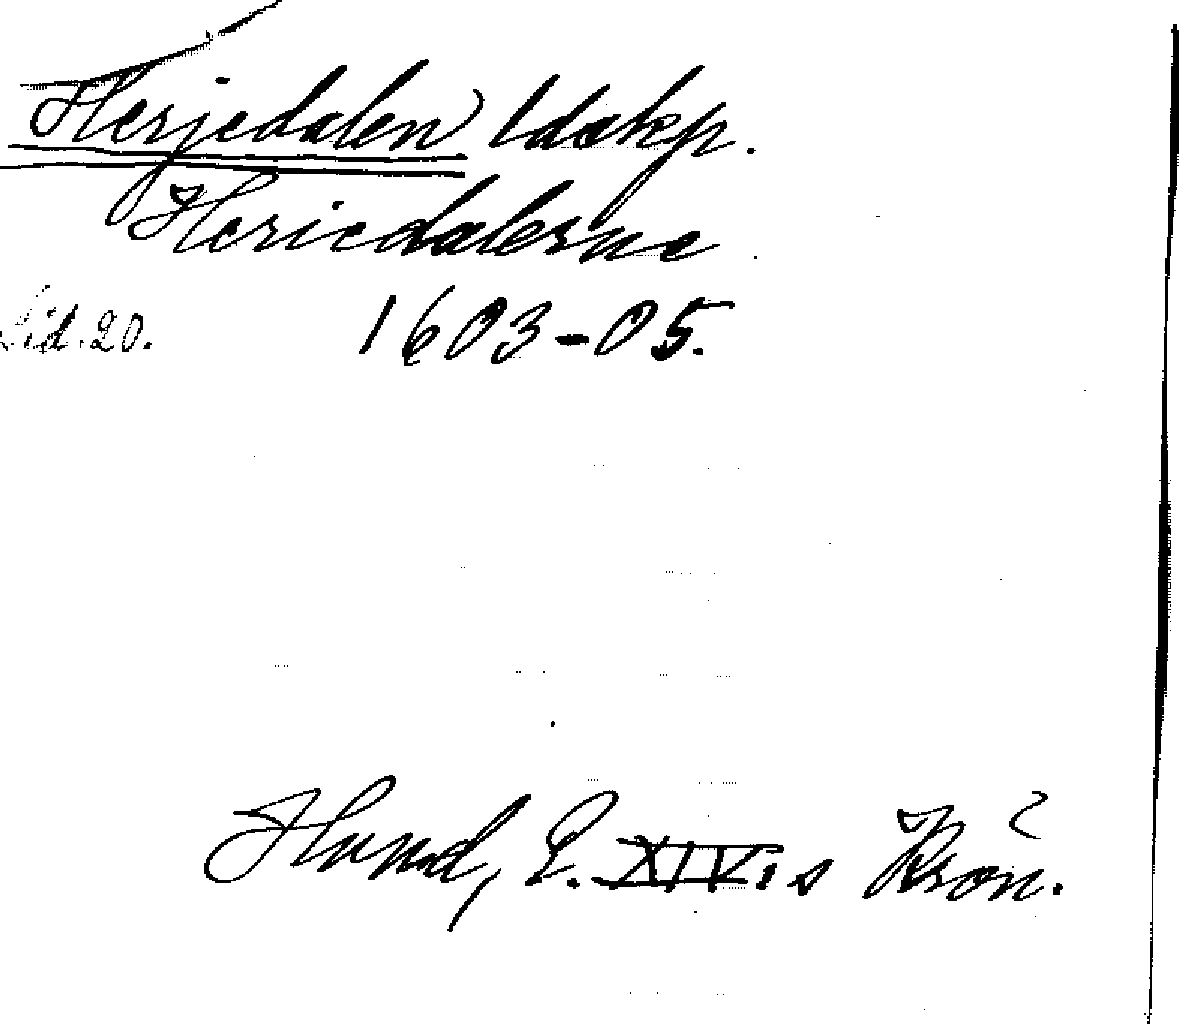 Herjedalen ldskp.
Heriedalerne
Sid. 20. 1603-05.
Hund, E. XIV:s Krön.